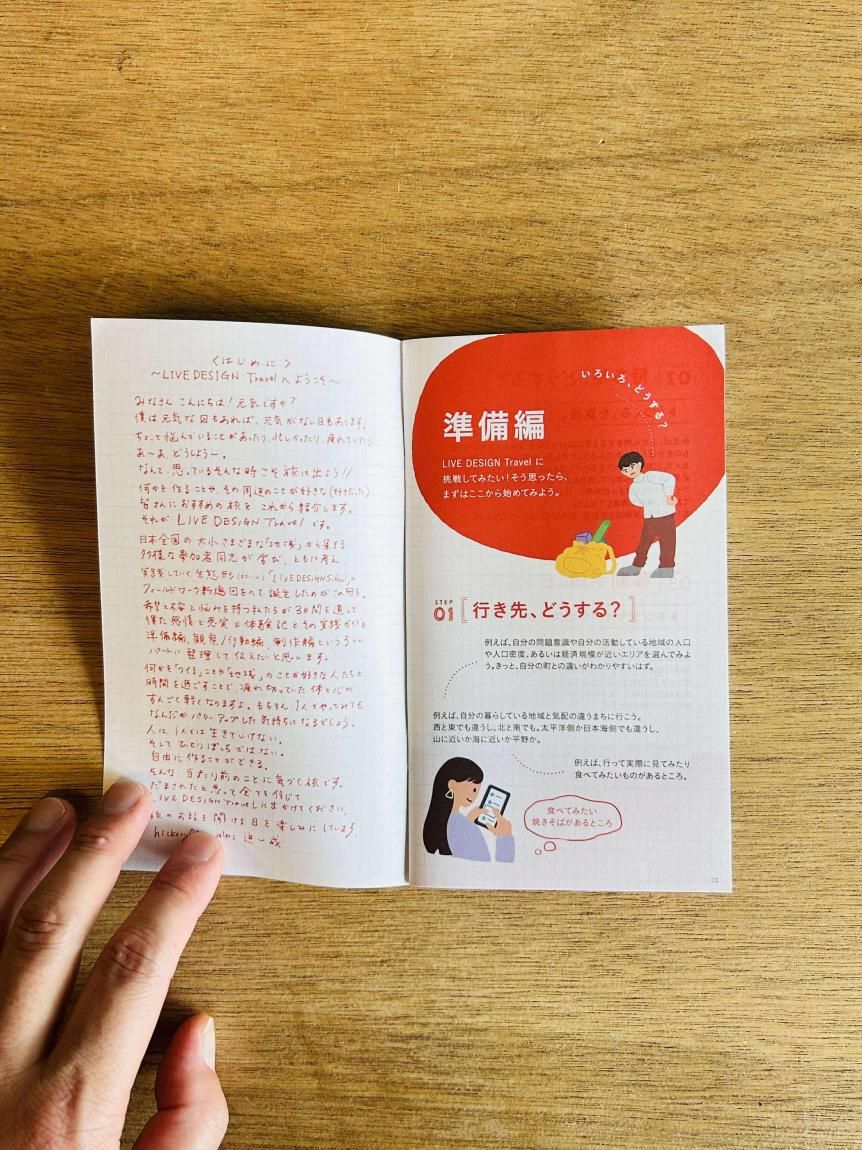 〈はじめに〉
〜LIVE DESIGN Travelへようこそ〜
みなさん こんにちは！元気ですか？
僕は元気な日もあれば、元気がない日もあります。
ちょっと悩んでいることがあったり、忙しかったり、疲れていたり
あ〜あ どうしよう〜。
なんて、思っているそんな時こそ旅に出よう！！
何かを作ることや、その周辺のことが好きな(好きだった)
皆さんにおすすめの旅を これから紹介します。
それが LIVE DESIGN Travel です。
日本全国の大小さまざまな「地域」から集まる
多様な参加者同志が学び、ともに考え、
実践していく生態系「LIVE DESIGN School」の
フィールドワーク新潟回をへて誕生したのがこの冊子。
希望と不安と悩みを持つ私たちが3日間を通して
得た感情と感覚と体験記とその実践ガイドを
準備編、観察/行動編、制作編という3つの
パートに整理して伝えたいと思います。
何かを「つくる」ことや「地域」のことが好きな人たちと
時間を過ごすことで、疲れ切っていた体と心が
すんごく軽くなりますよ。もちろん1人でやってみても
なんだかパワーアップした気持ちになるでしょう。
人は1人では生きていけない。
そして ひとりぼっちではない。
自由に作ることができる。
そんな 当たり前のことに気づく旅です。
だまされたと思って全てを信じて
LIVE DESIGN Travelにまかせてください。
旅のお話を聞ける日を楽しみにしています。
迫 一成
いろいろ、どうする？
準備編
LIVE DESIGN Travel に
挑戦してみたい！そう思ったら、
まずはここから始めてみよう。
STEP
01 [行き先、どうする？]
例えば、自分の問題意識や自分の活動している地域の人口
や人口密度、あるいは経済規模が近いエリアを選んでみよ
う。きっと、自分の町との違いがわかりやすいはず。
例えば、自分の暮らしている地域と気配の違うまちに行こう。
西と東でも違うし、北と南でも。太平洋側か日本海側でも違うし、
山に近いか海に近いか平野か。
例えば、行って実際に見てみたり
食べてみたいものがあるところ。
食べてみたい
焼きそばがあるところ
03